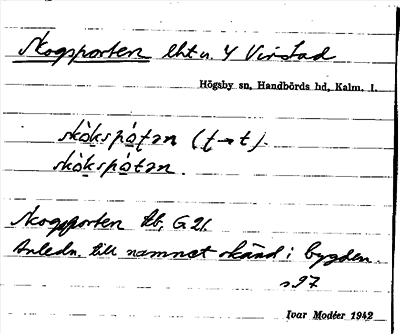 Skogsporten lht u. Y Virstad
Högsby sn, Handbörds hd, Kalm. l.
skòkspo̱ṭən (ṭ→t).
skòkspo̱tən.
Skogsporten Hb, G 21.
Anledn. till namnet okänd i bygden.
s 97
Ivar Modéer 1942